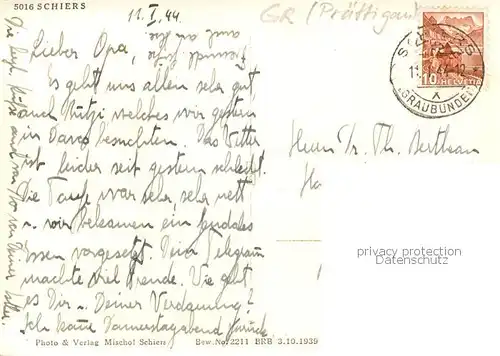 5016 SCHIERS
11.I.44
GR (Prättigau
Lieber Opa,
Es geht uns allen sehr gut
auch Mutzi welches wir gestern
in Davos besuchten. Das Wetter
ist leider seit gestern schlecht.
Die Taufe war sehr, sehr nett
u. wir bekamen ein
Essen vorgesetzt. Dein Telegramm
machte viel Freude. Wie geht
es Dir u. Deiner Verdauung?
Ich komme Donnerstagabend zurück.
HELVETIA
10
SCHIERS
(GRAUBÜNDEN)
Herrn Dr. Th.
privacy protection
www.ansichtskartenversand.com
Photo & Verlag Mischol Schiers
Bew. No. 2211 BRB 3.10.1939